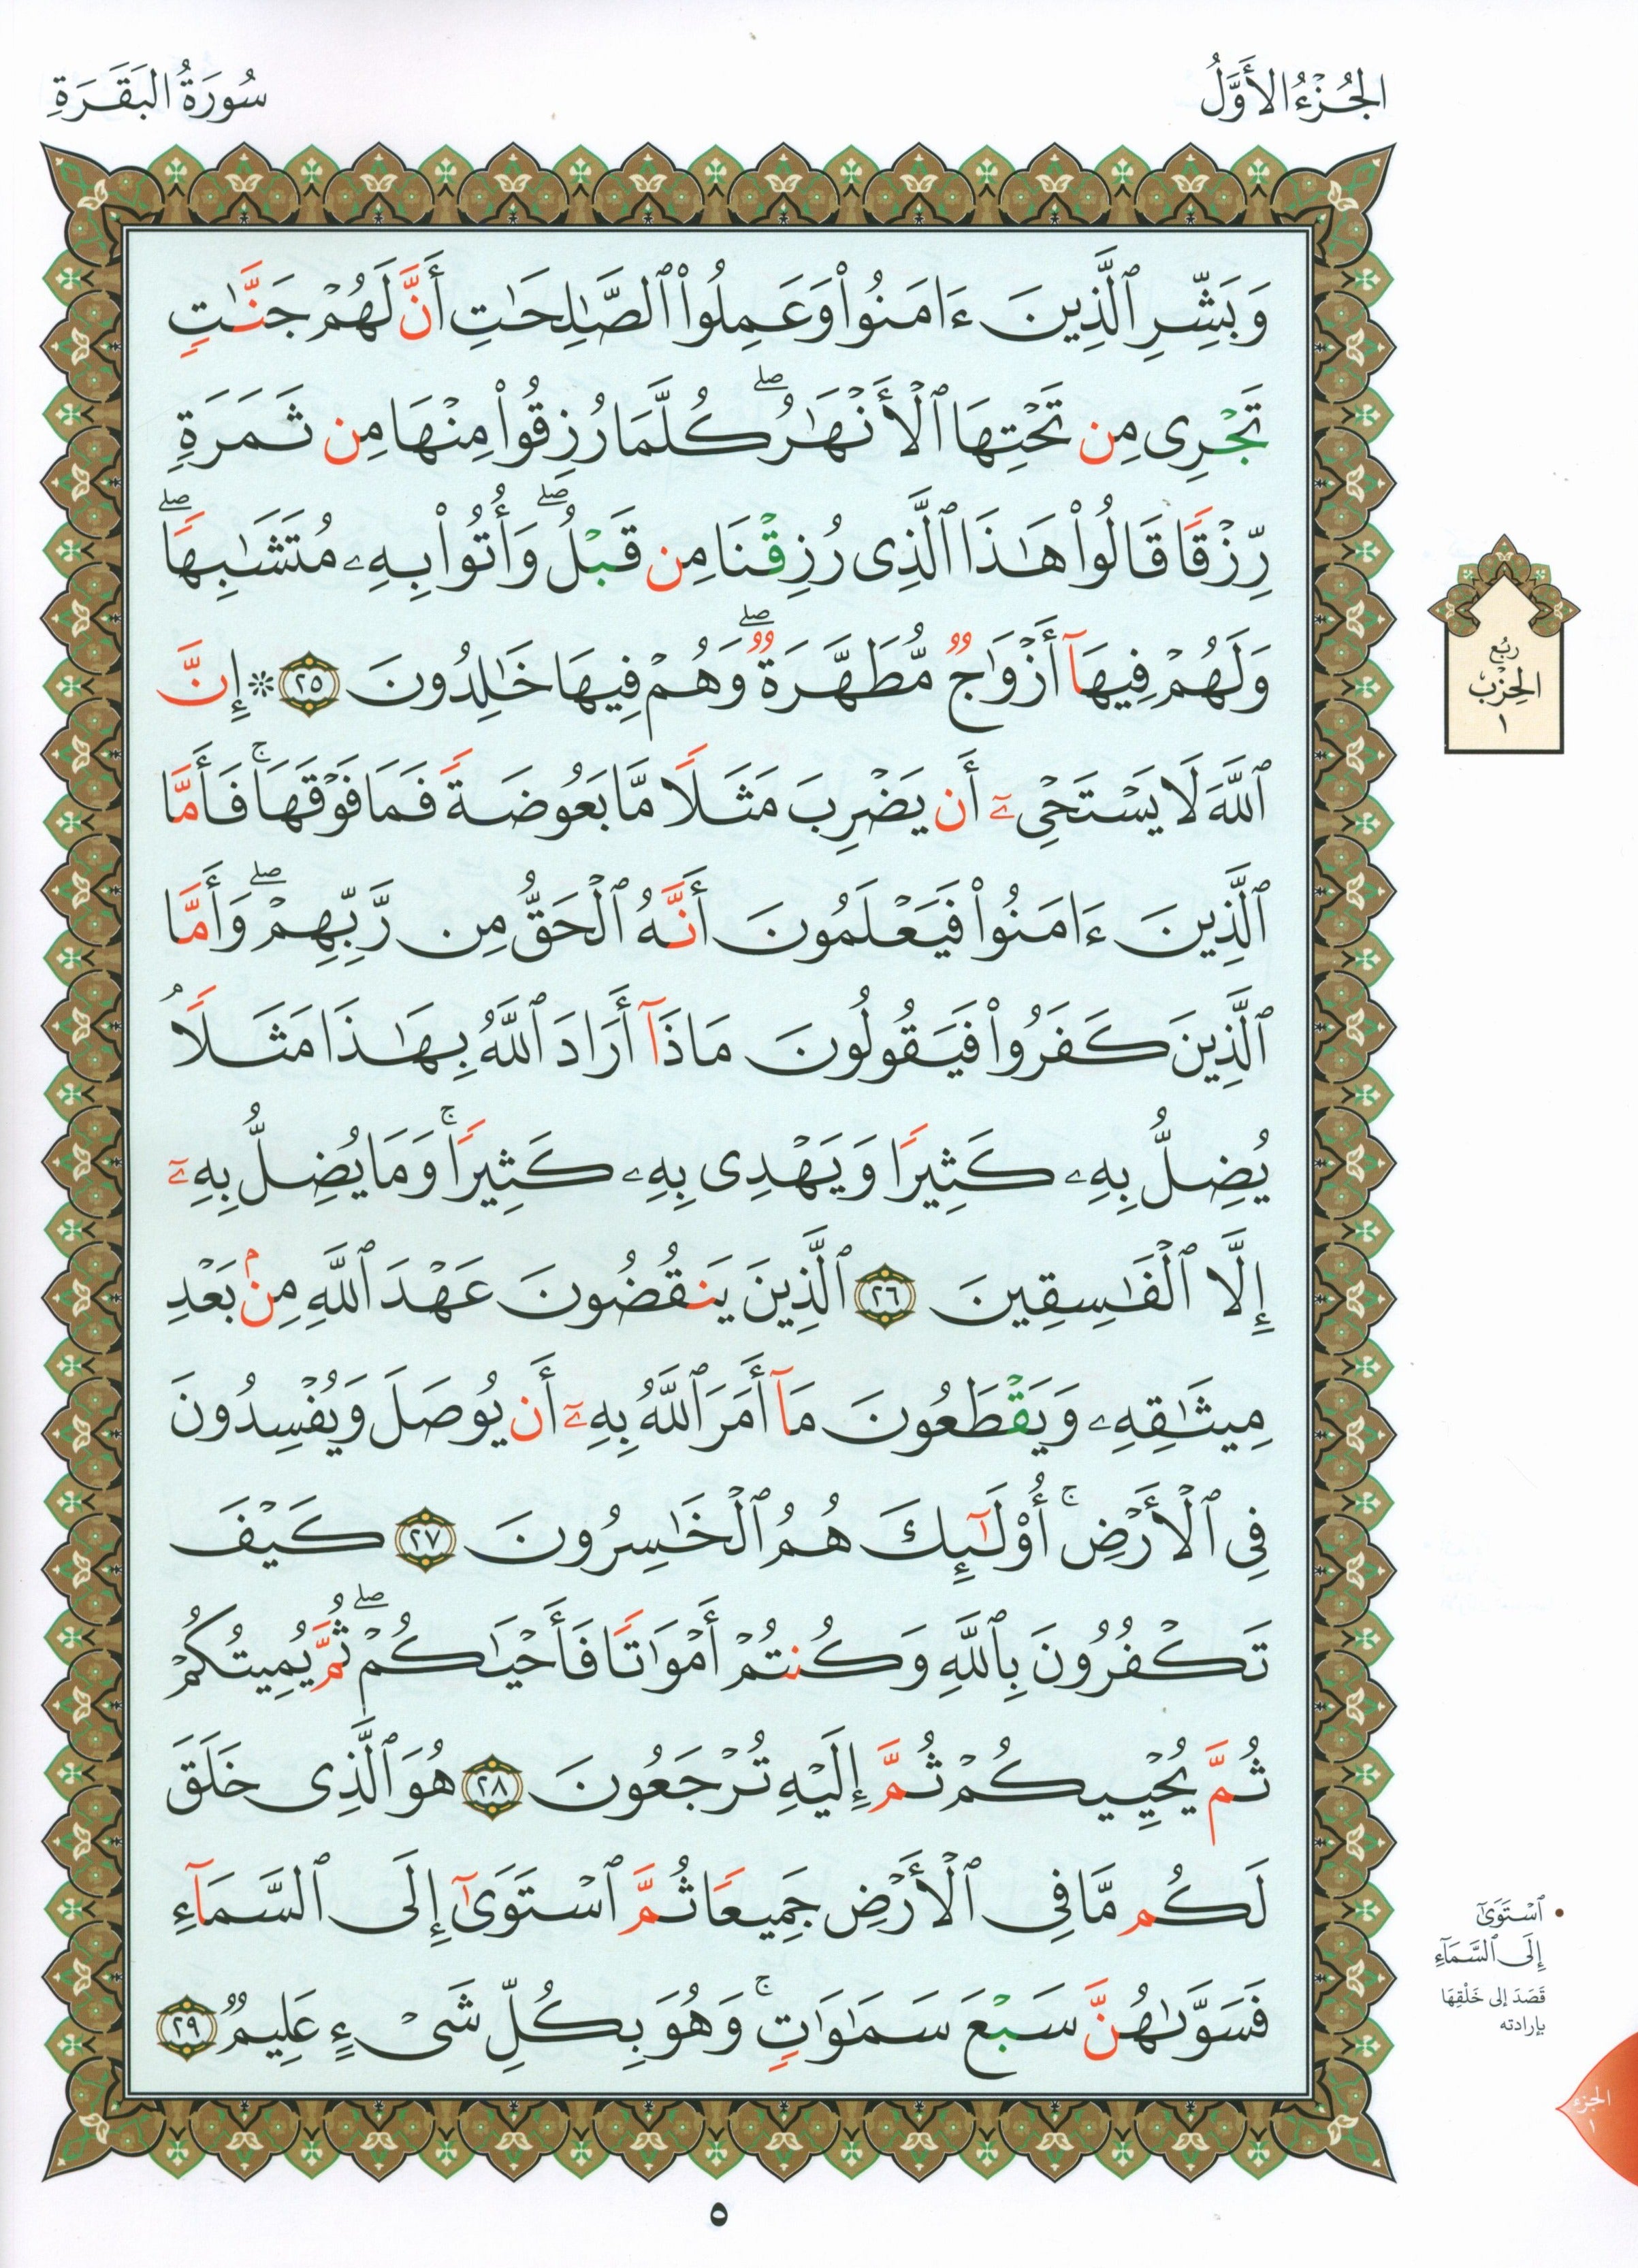 الجُزْءُ الأَوَّلُ
سُورَةُ البَقَرَةِ
وَبَشِّرِ ٱلَّذِينَ ءَامَنُوا۟ وَعَمِلُوا۟ ٱلصَّـٰلِحَـٰتِ أَنَّ لَهُمْ جَنَّـٰتٍ
تَجْرِى مِن تَحْتِهَا ٱلْأَنْهَـٰرُ ۖ كُلَّمَا رُزِقُوا۟ مِنْهَا مِن ثَمَرَةٍ
رِّزْقًا قَالُوا۟ هَـٰذَا ٱلَّذِى رُزِقْنَا مِن قَبْلُ ۖ وَأُتُوا۟ بِهِۦ مُتَشَـٰبِهًا ۖ
وَلَهُمْ فِيهَآ أَزْوَٰجٌ مُّطَهَّرَةٌ ۖ وَهُمْ فِيهَا خَـٰلِدُونَ ٢٥ ۞ إِنَّ
ٱللَّهَ لَا يَسْتَحْىِۦٓ أَن يَضْرِبَ مَثَلًا مَّا بَعُوضَةً فَمَا فَوْقَهَا ۚ فَأَمَّا
ٱلَّذِينَ ءَامَنُوا۟ فَيَعْلَمُونَ أَنَّهُ ٱلْحَقُّ مِن رَّبِّهِمْ ۖ وَأَمَّا
ٱلَّذِينَ كَفَرُوا۟ فَيَقُولُونَ مَاذَآ أَرَادَ ٱللَّهُ بِهَـٰذَا مَثَلًا ۘ
يُضِلُّ بِهِۦ كَثِيرًا وَيَهْدِى بِهِۦ كَثِيرًا ۚ وَمَا يُضِلُّ بِهِۦٓ
إِلَّا ٱلْفَـٰسِقِينَ ٢٦ ٱلَّذِينَ يَنقُضُونَ عَهْدَ ٱللَّهِ مِنۢ بَعْدِ
مِيثَـٰقِهِۦ وَيَقْطَعُونَ مَآ أَمَرَ ٱللَّهُ بِهِۦٓ أَن يُوصَلَ وَيُفْسِدُونَ
فِى ٱلْأَرْضِ ۚ أُو۟لَـٰٓئِكَ هُمُ ٱلْخَـٰسِرُونَ ٢٧ كَيْفَ
تَكْفُرُونَ بِٱللَّهِ وَكُنتُمْ أَمْوَٰتًا فَأَحْيَـٰكُمْ ۖ ثُمَّ يُمِيتُكُمْ
ثُمَّ يُحْيِيكُمْ ثُمَّ إِلَيْهِ تُرْجَعُونَ ٢٨ هُوَ ٱلَّذِى خَلَقَ
لَكُم مَّا فِى ٱلْأَرْضِ جَمِيعًا ثُمَّ ٱسْتَوَىٰٓ إِلَى ٱلسَّمَآءِ
فَسَوَّىٰهُنَّ سَبْعَ سَمَـٰوَٰتٍ ۚ وَهُوَ بِكُلِّ شَىْءٍ عَلِيمٌ ٢٩
رُبْع
الحِزْب
١
• ٱسْتَوَىٰٓ
إِلَى ٱلسَّمَآءِ
قَصَدَ إلى خَلْقِهَا
بإرادته
الجزء
١
٥